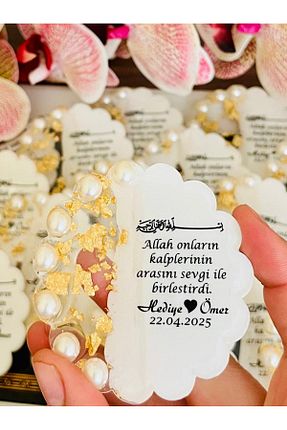 بسم الله الرحمن الرحيم
Allah onların
kalplerinin
arasını sevgi ile
birleştirdi.
Hediye ♥ Ömer
22.04.2025